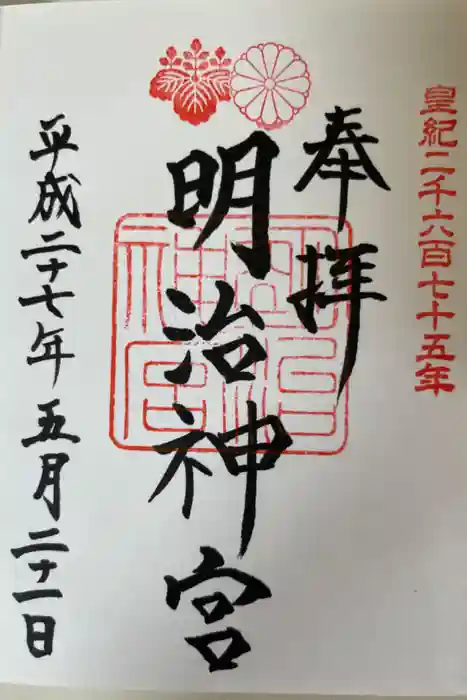 皇紀二千六百七十五年
奉拝
明治神宮
明治神宮
平成二十七年五月二十一日